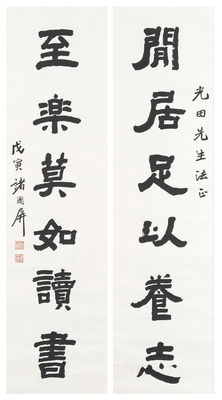 光田先生法正
閒居足以養志
至楽莫如讀書
戊寅 諸國屏